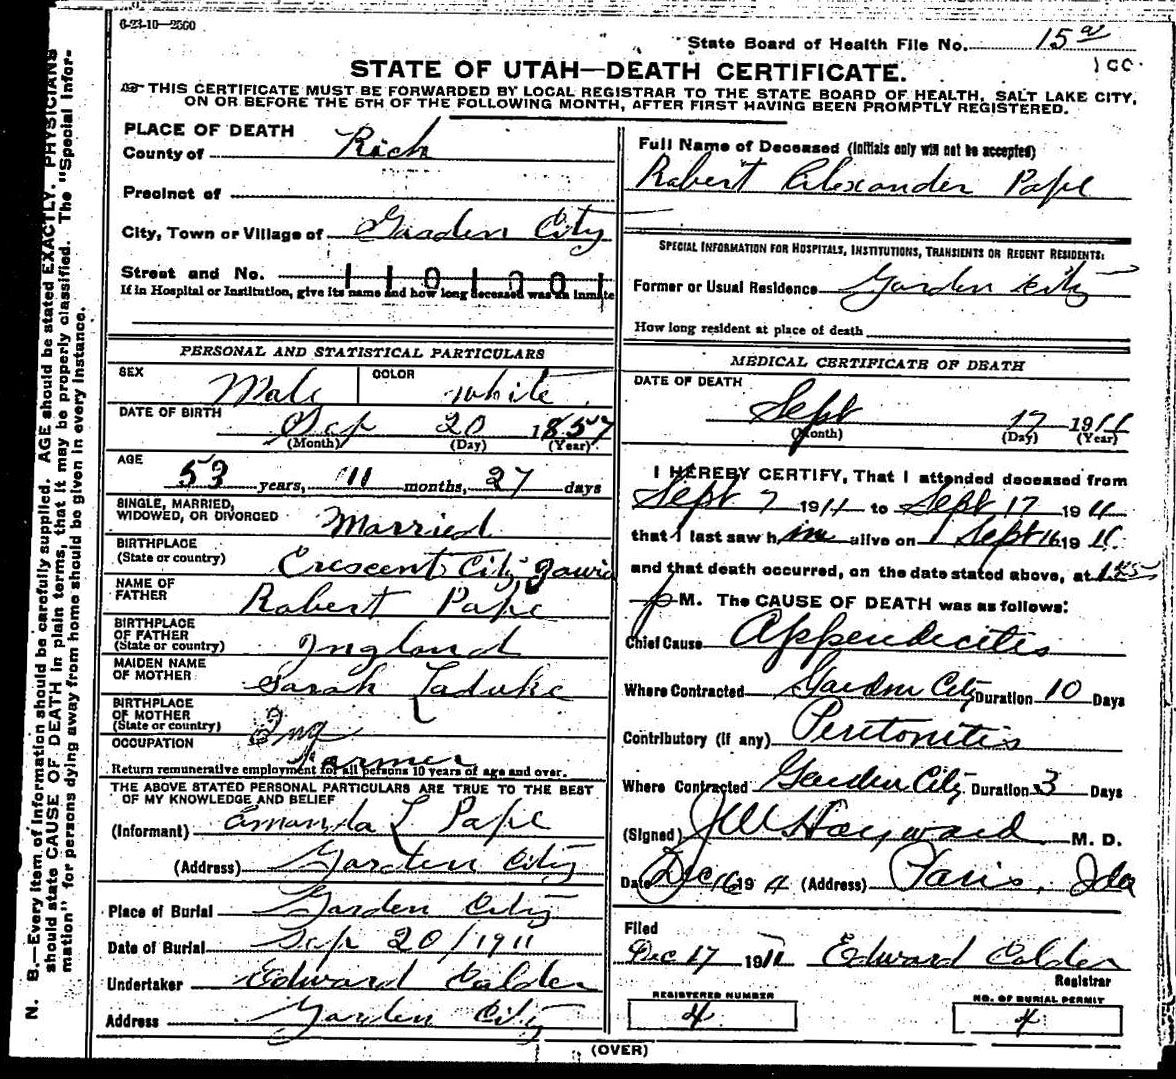 6-23-10—2500
State Board of Health File No. 15 a
100
STATE OF UTAH—DEATH CERTIFICATE.
THIS CERTIFICATE MUST BE FORWARDED BY LOCAL REGISTRAR TO THE STATE BOARD OF HEALTH, SALT LAKE CITY,
ON OR BEFORE THE 5TH OF THE FOLLOWING MONTH, AFTER FIRST HAVING BEEN PROMPTLY REGISTERED.
N. B.—Every item of information should be carefully supplied. AGE should be stated EXACTLY. PHYSICIANS
should state CAUSE OF DEATH in plain terms, that it may be properly classified. The "Special Infor-
mation" for persons dying away from home should be given in every instance.
PLACE OF DEATH
County of Rich
Precinct of
City, Town or Village of Garden City
Street and No. 1101001
If in Hospital or Institution, give its name and how long deceased was an inmate
PERSONAL AND STATISTICAL PARTICULARS
SEX Male COLOR White
DATE OF BIRTH
Sep 20 1857
(Month) (Day) (Year)
AGE
53 years, 11 months, 27 days
SINGLE, MARRIED,
WIDOWED, OR DIVORCED Married
BIRTHPLACE
(State or country) Crescent City,
NAME OF
FATHER Robert Pape
BIRTHPLACE
OF FATHER
(State or country) Ingland
MAIDEN NAME
OF MOTHER Sarah Laduke
BIRTHPLACE
OF MOTHER
(State or country) Ing
OCCUPATION Farmer
Return remunerative employment for all persons 10 years of age and over.
THE ABOVE STATED PERSONAL PARTICULARS ARE TRUE TO THE BEST
OF MY KNOWLEDGE AND BELIEF
(Informant) Amanda L Pape
(Address) Garden City
Place of Burial Garden City
Date of Burial Sep 20/1911
Undertaker Edward Calder
Address Garden City
Full Name of Deceased (Initials only will not be accepted)
Robert Alexander Pape
SPECIAL INFORMATION FOR HOSPITALS, INSTITUTIONS, TRANSIENTS OR RECENT RESIDENTS:
Former or Usual Residence Garden City
How long resident at place of death
MEDICAL CERTIFICATE OF DEATH
DATE OF DEATH
Sept 17 1911
(Month) (Day) (Year)
I HEREBY CERTIFY, That I attended deceased from
Sept 7 1911 to Sept 17 1911
that I last saw h im alive on Sept 16 1911.
and that death occurred, on the date stated above, at 1.45
p M. The CAUSE OF DEATH was as follows:
Chief Cause Appendicitis
Where Contracted Garden City Duration 10 Days
Contributory (if any) Peritonitis
Where Contracted Garden City Duration 3 Days
(Signed) J W Hayward M. D.
Date Dec 16 1911 (Address) Paris, Ida
Filed
Dec 17 1911 Edward Calder
Registrar
REGISTERED NUMBER
4
NO. OF BURIAL PERMIT
4
(OVER)